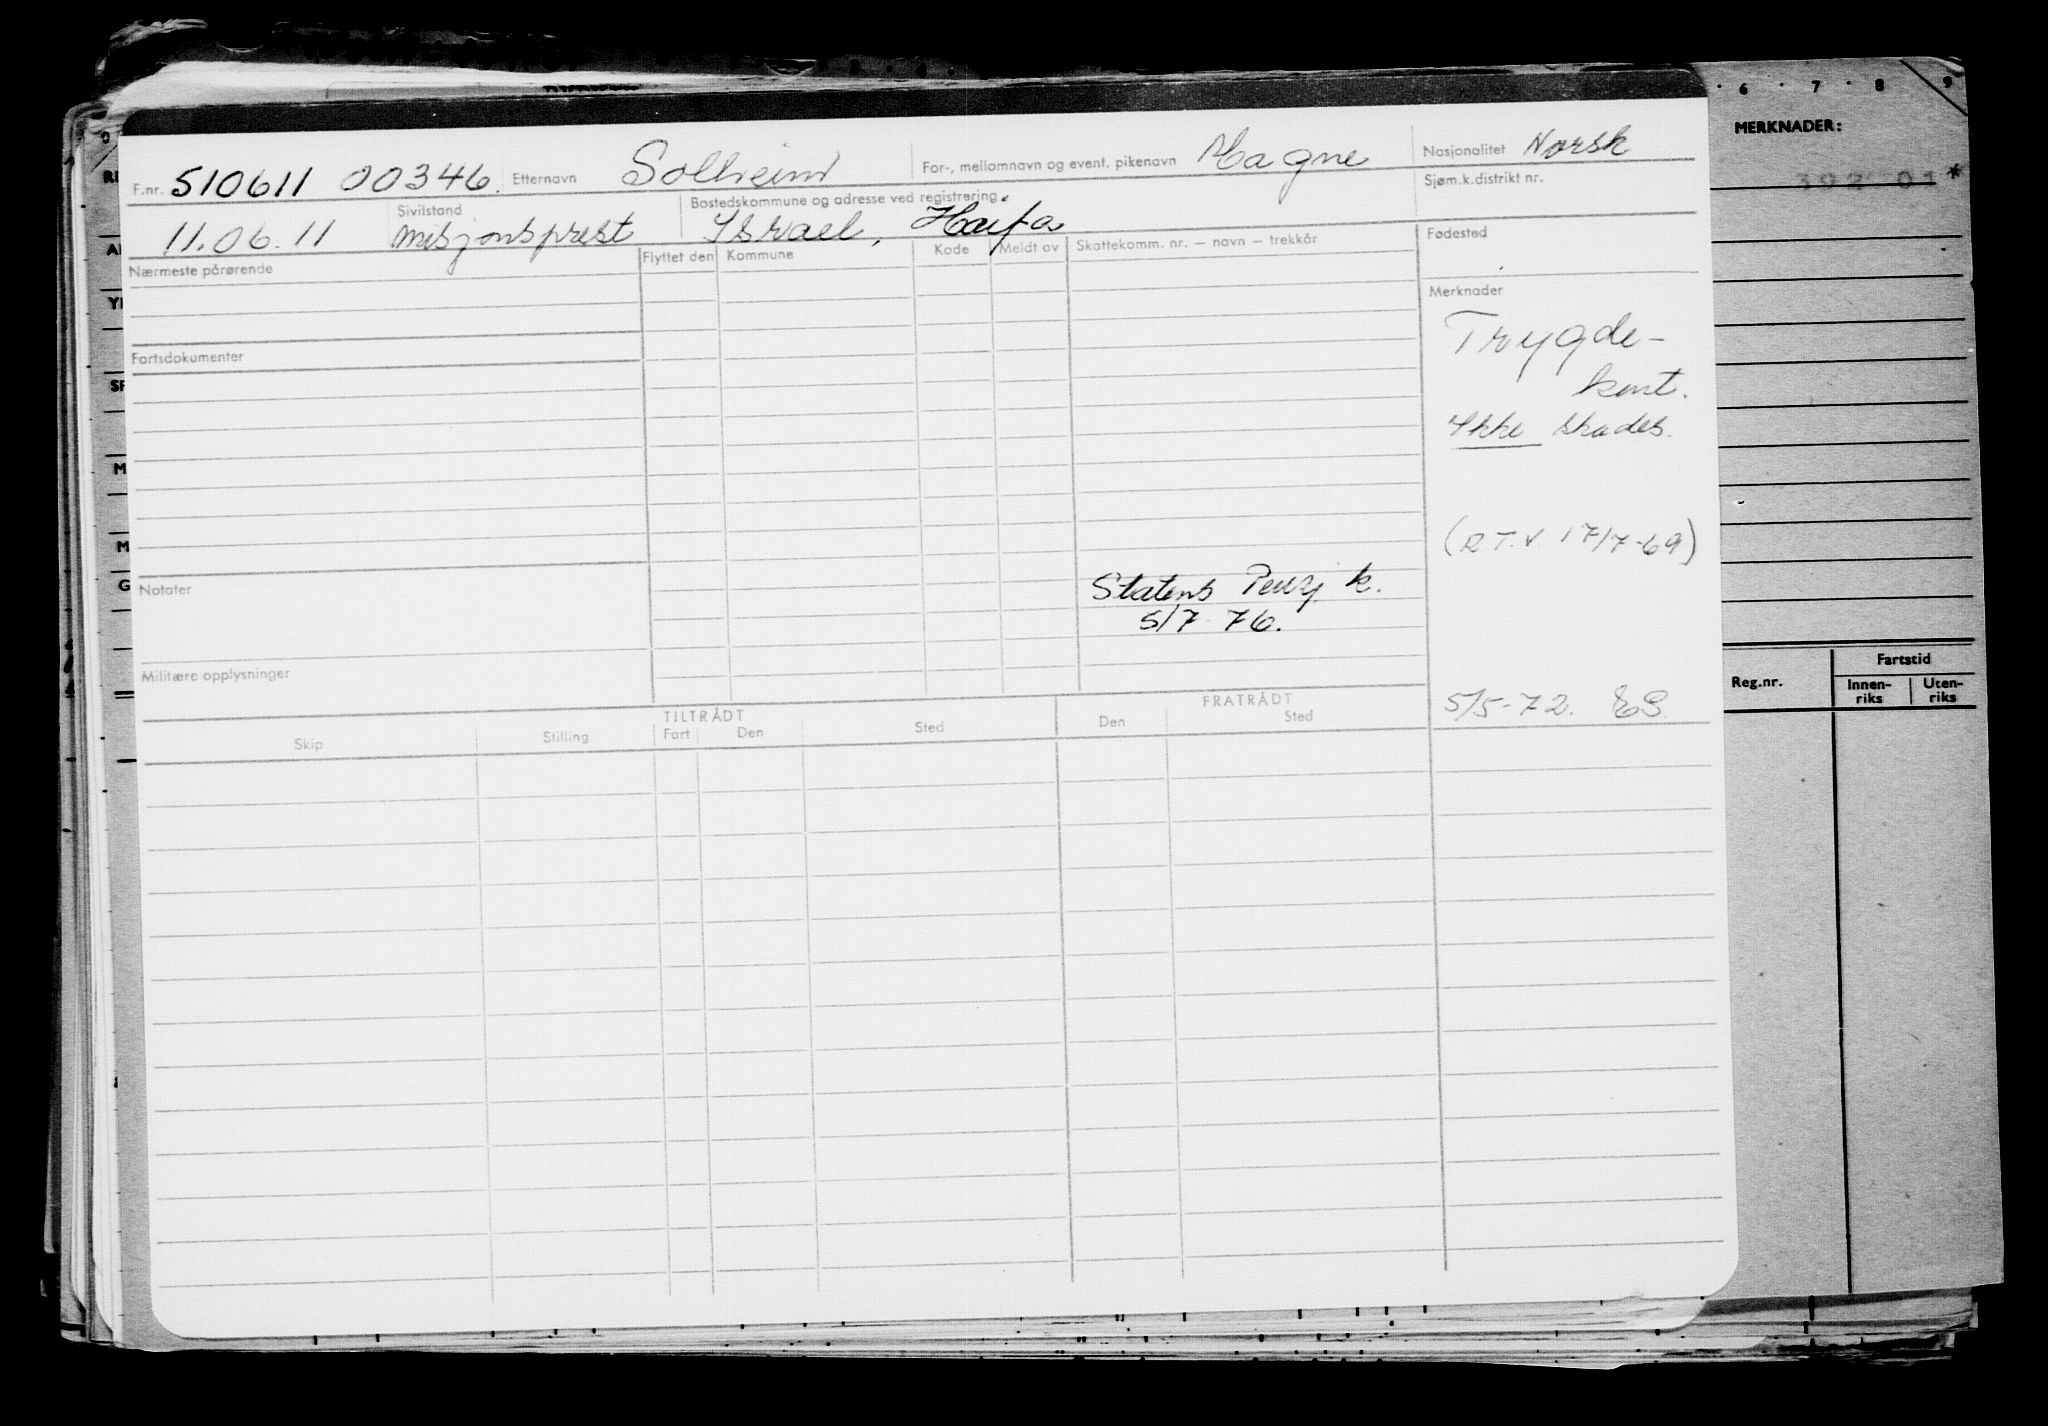 6 7 8 9
MERKNADER:
F.nr. 510611 00346. Etternavn Solheim For-, mellomnavn og event. pikenavn Magne Nasjonalitet Norsk
Sjøm.k.distrikt nr.
11.06.11 Sivilstand misjonsprest Bostedskommune og adresse ved registrering. Israel, Haifa
Nærmeste pårørende Flyttet den Kommune Kode Meldt av Skattekomm. nr. — navn — trekkår Fødested
Merknader
Trygde-
kont.
Ikke skades.
Fartsdokumenter
(R.T.V. 17/7-69)
Notater
Statens Pensj. k.
5/7 76.
Militære opplysninger
5/5-72. ES
TILTRÅDT FRATRÅDT
Skip Stilling Fart Den Sted Den Sted
Reg.nr. Fartstid
Innen-riks Uten-riks